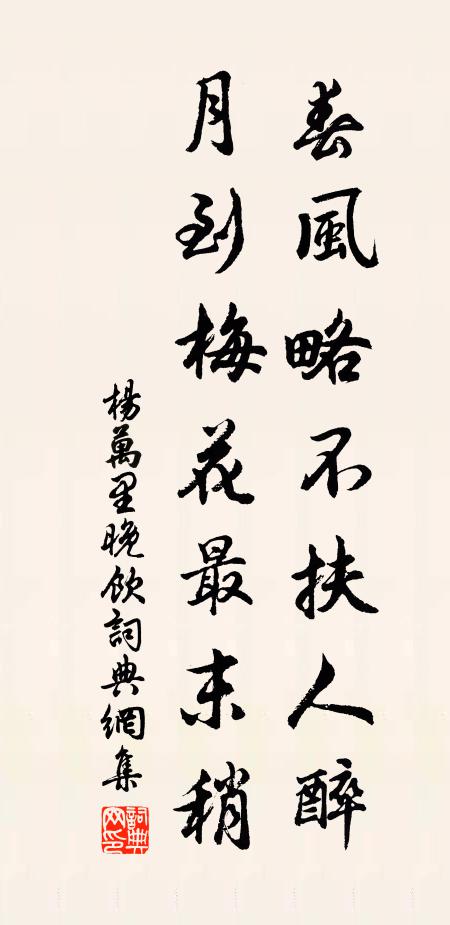 春風略不扶人醉
月到梅花最末稍
楊萬里晚飲詞典網集
詞典網印